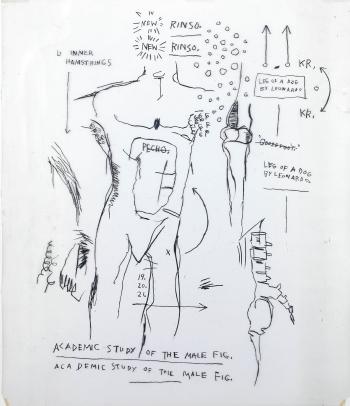 NEW RINSO.
NEW RINSO.
L INNER
HAMSTRINGS
KR.
LEG OF A DOG
BY LEONARDO
KR.
PECHO.
LEG OF A DOG
BY LEONARDO.
X
19.
20.
21.
ACADEMIC STUDY OF THE MALE FIG.
ACADEMIC STUDY OF THE MALE FIG.